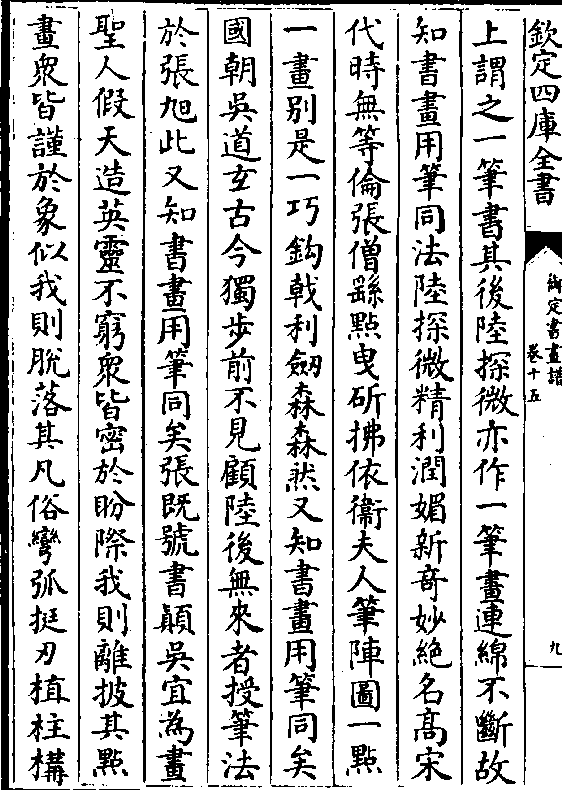 欽定四庫全書
御定書畫譜
卷十五
九
上謂之一筆書其後陸探微亦作一筆畫連綿不斷故
知書畫用筆同法陸探微精利潤媚新奇妙絶名髙宋
代時無等倫張僧繇點曳斫拂依衞夫人筆陣圖一點
一畫别是一巧鈎戟利劒森森然又知書畫用筆同矣
國朝吳道𤣥古今獨步前不見顧陸後無來者授筆法
於張旭此又知書畫用筆同矣張既號書顛吳宜為畫
聖人假天造英靈不窮衆皆密於盼際我則離披其點
畫衆皆謹於象似我則脫落其凡俗彎弧挺刃植柱構